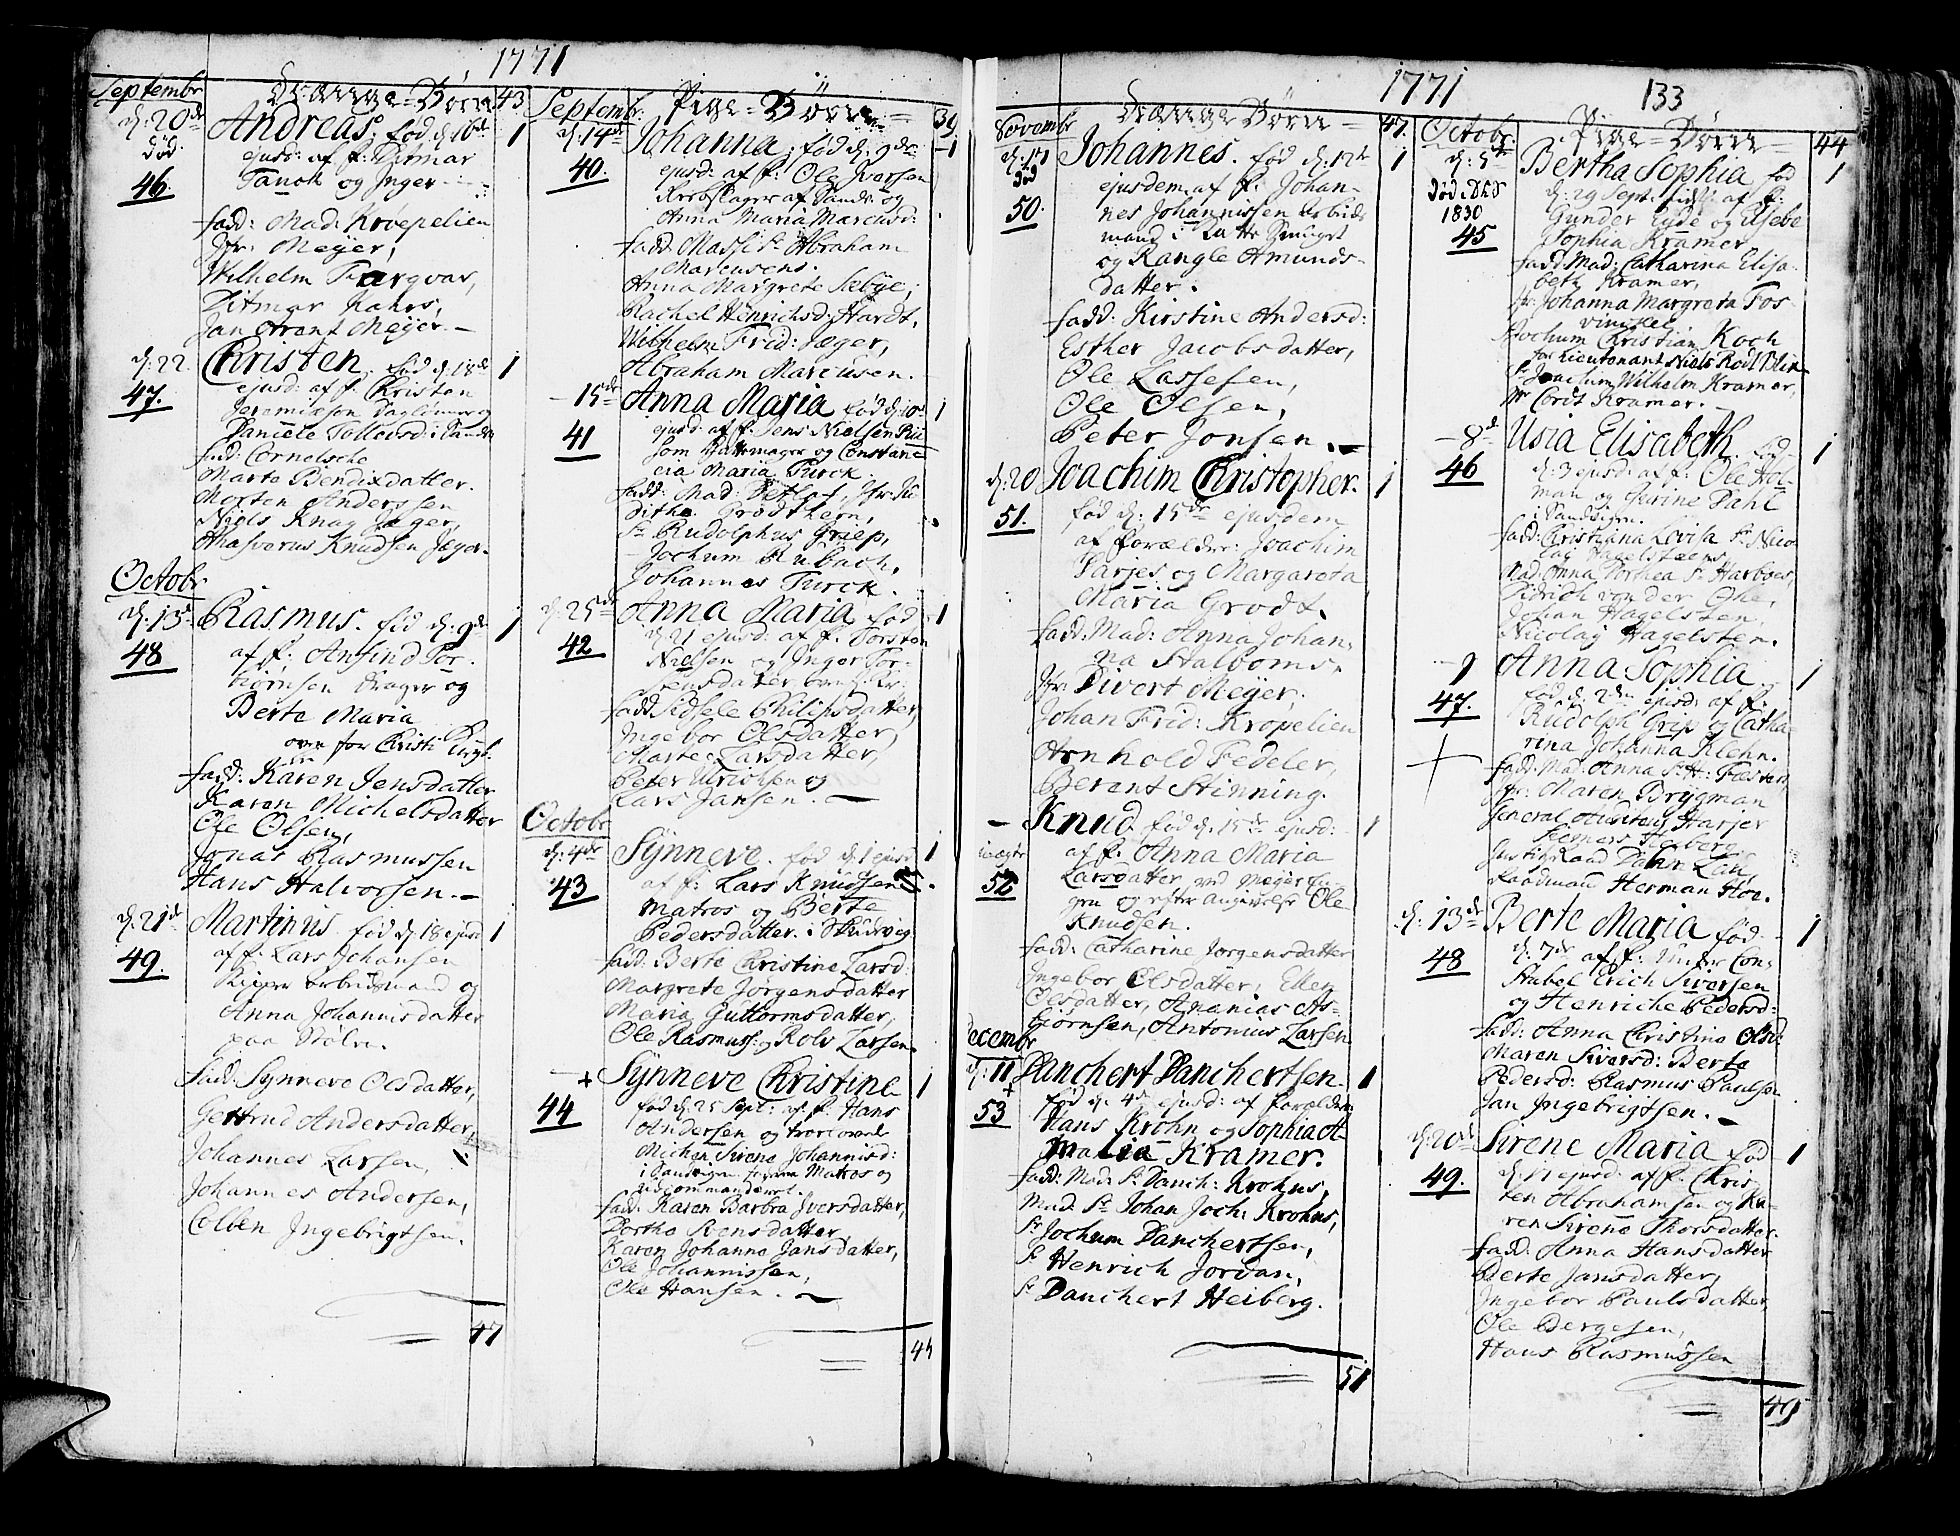 1771
Septembr
Drenge-Børn
43
d: 20de
død.
46.
Andreas. fød d: 16de
1
ejusd: af f: Ditmar
Tanck og Inger
fadd: Mad: Krøepelien
Jfr: Meyer,
Wilhelm Farqvar,
Ditmar Nahrs,
Jan Arent Meyer.
d: 22
47.
Christen. fød d: 18de
1
ejusd: af f: Christen
Jeremiæson Daglønner og
Daniele Tollevsd: i Sandv:
fad: Cornelsche
Marte Bendixdatter.
Morten Anderssen
Niels Knag Jæger,
Ahasverus Knudsen Jæger.
Octobr
d: 13de
48
Rasmus. fød d: 9de
1
af f: Ansind Tor-
biørnsen Drager og
Berte Maria
oven for Christi Kryb.
fadd: Karen Jensdatter
Karen Michelsdatter
Ole Olsen,
Jonas Rasmussen
Hans Halvorsen.
d: 21de
49.
Martinus. fød d: 18 ejusd
1
af f: Lars Johansen
Ripper Arbeidsmand og
Anna Johannisdatter
paa Nølen.
fadd: Synneve Olsdatter,
Gertrud Andersdatter,
Johannes Larsen,
Johannes Andersen,
Colben Ingebrigtsen.
47
Septembr:
Pige-Børn
39
d: 14de
40.
Johanna. fød d: 9de
1
ejusd: af f: Ole Iversen
Rebslager af Sandv: og
Anna Maria Marcusd:
fadd: Massi Sr Abraham
Marcusens.
Anna Margrete Sæbye,
Rachel Henrichsd: Hardt,
Wilhelm Frid: Jæger,
Abraham Marcusen.
15de
41
Anna Maria fød d: 10de
1
ejusd: af f: Jens Nielsen Riis
som Hattemager og Constan-
cia Maria Turck.
fadd: Mad: Detlof, Jfr: Ju-
ditha Trodthern,
Sr Rudolphus Griep,
Jochum Rubach,
Johannes Turck.
d: 25de
42
Anna Maria fød
1
d: 21 ejusd: af f: Torsten
Nielsen og Inger Tor-
stensdatter
fadd: Sidsele Philipsdatter,
Ingebor Olsdatter,
Marte Larsdatter,
Peter Ulrichsen og
Lars Jansen.
Octobr
d: 4de
43
Synneve. fød d: 1 ejusd
1
af f: Lars Knudsen
Matros og Berte
Pedersdatter i Skudevig
fadd: Berte Christine Larsd:
Margrete Jørgensdatter
Maria Guttormsdatter,
Ole Rasmuss: og Rolv Larsen.
+
44
Synneve Christine
1
fød d: 25 Sept: af f: Hans
Andersen og
Michen Sirene Johannisd:
i Sandvigen Matros og
udcommanderet.
fadd: Karen Barbra Iversdatter,
Dorthe Rensdatter,
Karen Johanna Jansdatter,
Ole Johannissen,
Ole Hansen.
44
1771
133
Novembr
Drenge Børn
47.
d: 17
død
50.
Johannes. fød d: 12te
1
ejusdem af f: Johan-
nes Johannissen Arbeids-
mand i Lotte Smuget
og Rangle Amunds-
datter.
fadd: Kirstine Andersd:
Esther Jacobsdatter,
Ole Lassesen,
Ole Olsen,
Peter Jonsen.
d: 20
51.
Joachim Christopher.
1
fød d: 15de ejusdem
af forældre: Joachim
Sarjes og Margareta
Maria Grodt.
fadd: Mad: Anna Johan-
na Stalboms.
Jfr: Divert Meyer.
Johan Frid: Kropelien
Arnhold Fedeler,
Berent Stinning.
uægte
52
Knud. fød d: 15de ejusd:
1
af f: Anna Maria
Larsdatter ved Meyer En-
gen og efter Angivelse Ole
Knudsen.
fadd: Catharine Jørgensdatter
Ingebor Olsdatter, Ellen
Olsdatter, Ananias As-
biørnsen, Antonius Larsen
Decembr
d: 11
+
53
Danchert Danchertsen.
1
fød d: 4de ejusd: af forældre
Hans Krohn og Sophia A-
malia Kramer.
fadd: Mad: Sr Danch: Krohns,
Mad: Sr Johan Joch: Krohns,
Sr Jochum Danchertsen,
Sr Henrich Jordan,
Sr Danchert Heiberg.
51
Octobr:
Pige-Børn
44
d: 5te
død
1830
45
Bertha Sophia fød
1
d: 29 Sept: af f:
Gunder Eyde og Elsebe
Sophia Kramer
fadd Mad: Catharina Elisa-
beth Kramer,
Jfr Johanna Margreta Fos-
vinckel
Jochum Christian Koch
for Lieutenant Niels Rod Blix
Sr Joachum Wilhelm Kramer,
Mr Cordt Kramer.
8de
46
Usia Elisabeth. fød
1
d: 3 ejusd: af f: Ole Hol-
man og Jurine Dahl
i Sandvigen.
fadd: Christiana Lovisa Sr Nico-
lay Hagelsteens,
Mad: Anna Dorthea Sr Harboes,
Didrich von der Ohe,
Johan Hagelsten,
Nicolay Hagelsten.
9
47.
+
Anna Sophia
1
fød d: 2den ejusd: af f:
Rudolph Grip og Catha-
rina Johanna Klehn.
fadd: Mad: Anna Sr H: Fæsters
Jfr: Maren Brygman
General Auditeur Hartvig
Seemers Heiberg,
Justitz Raad Daniel Lan,
Raadmand Herman Hoe.
d: 13de
48
Berte Maria fød
1
d: 7de af f: Under Con-
stabel Erich Siversen
og Henriche Pedersd:
fadd: Anna Christina Olsd:
Maren Siversd: Berte
Pedersd: Rasmus Paulsen
Jan Ingebrigtsen.
d: 20de
49.
Sirene Maria fød
1
d: 17 ejusd: af f: Chris-
ten Abrahamsen og Ka-
ren Sirene Thorsdatter.
fadd: Anna Hansdatter
Berte Jansdatter,
Ingebor Paulsdatter,
Ole Bergesen,
Hans Rasmussen
49